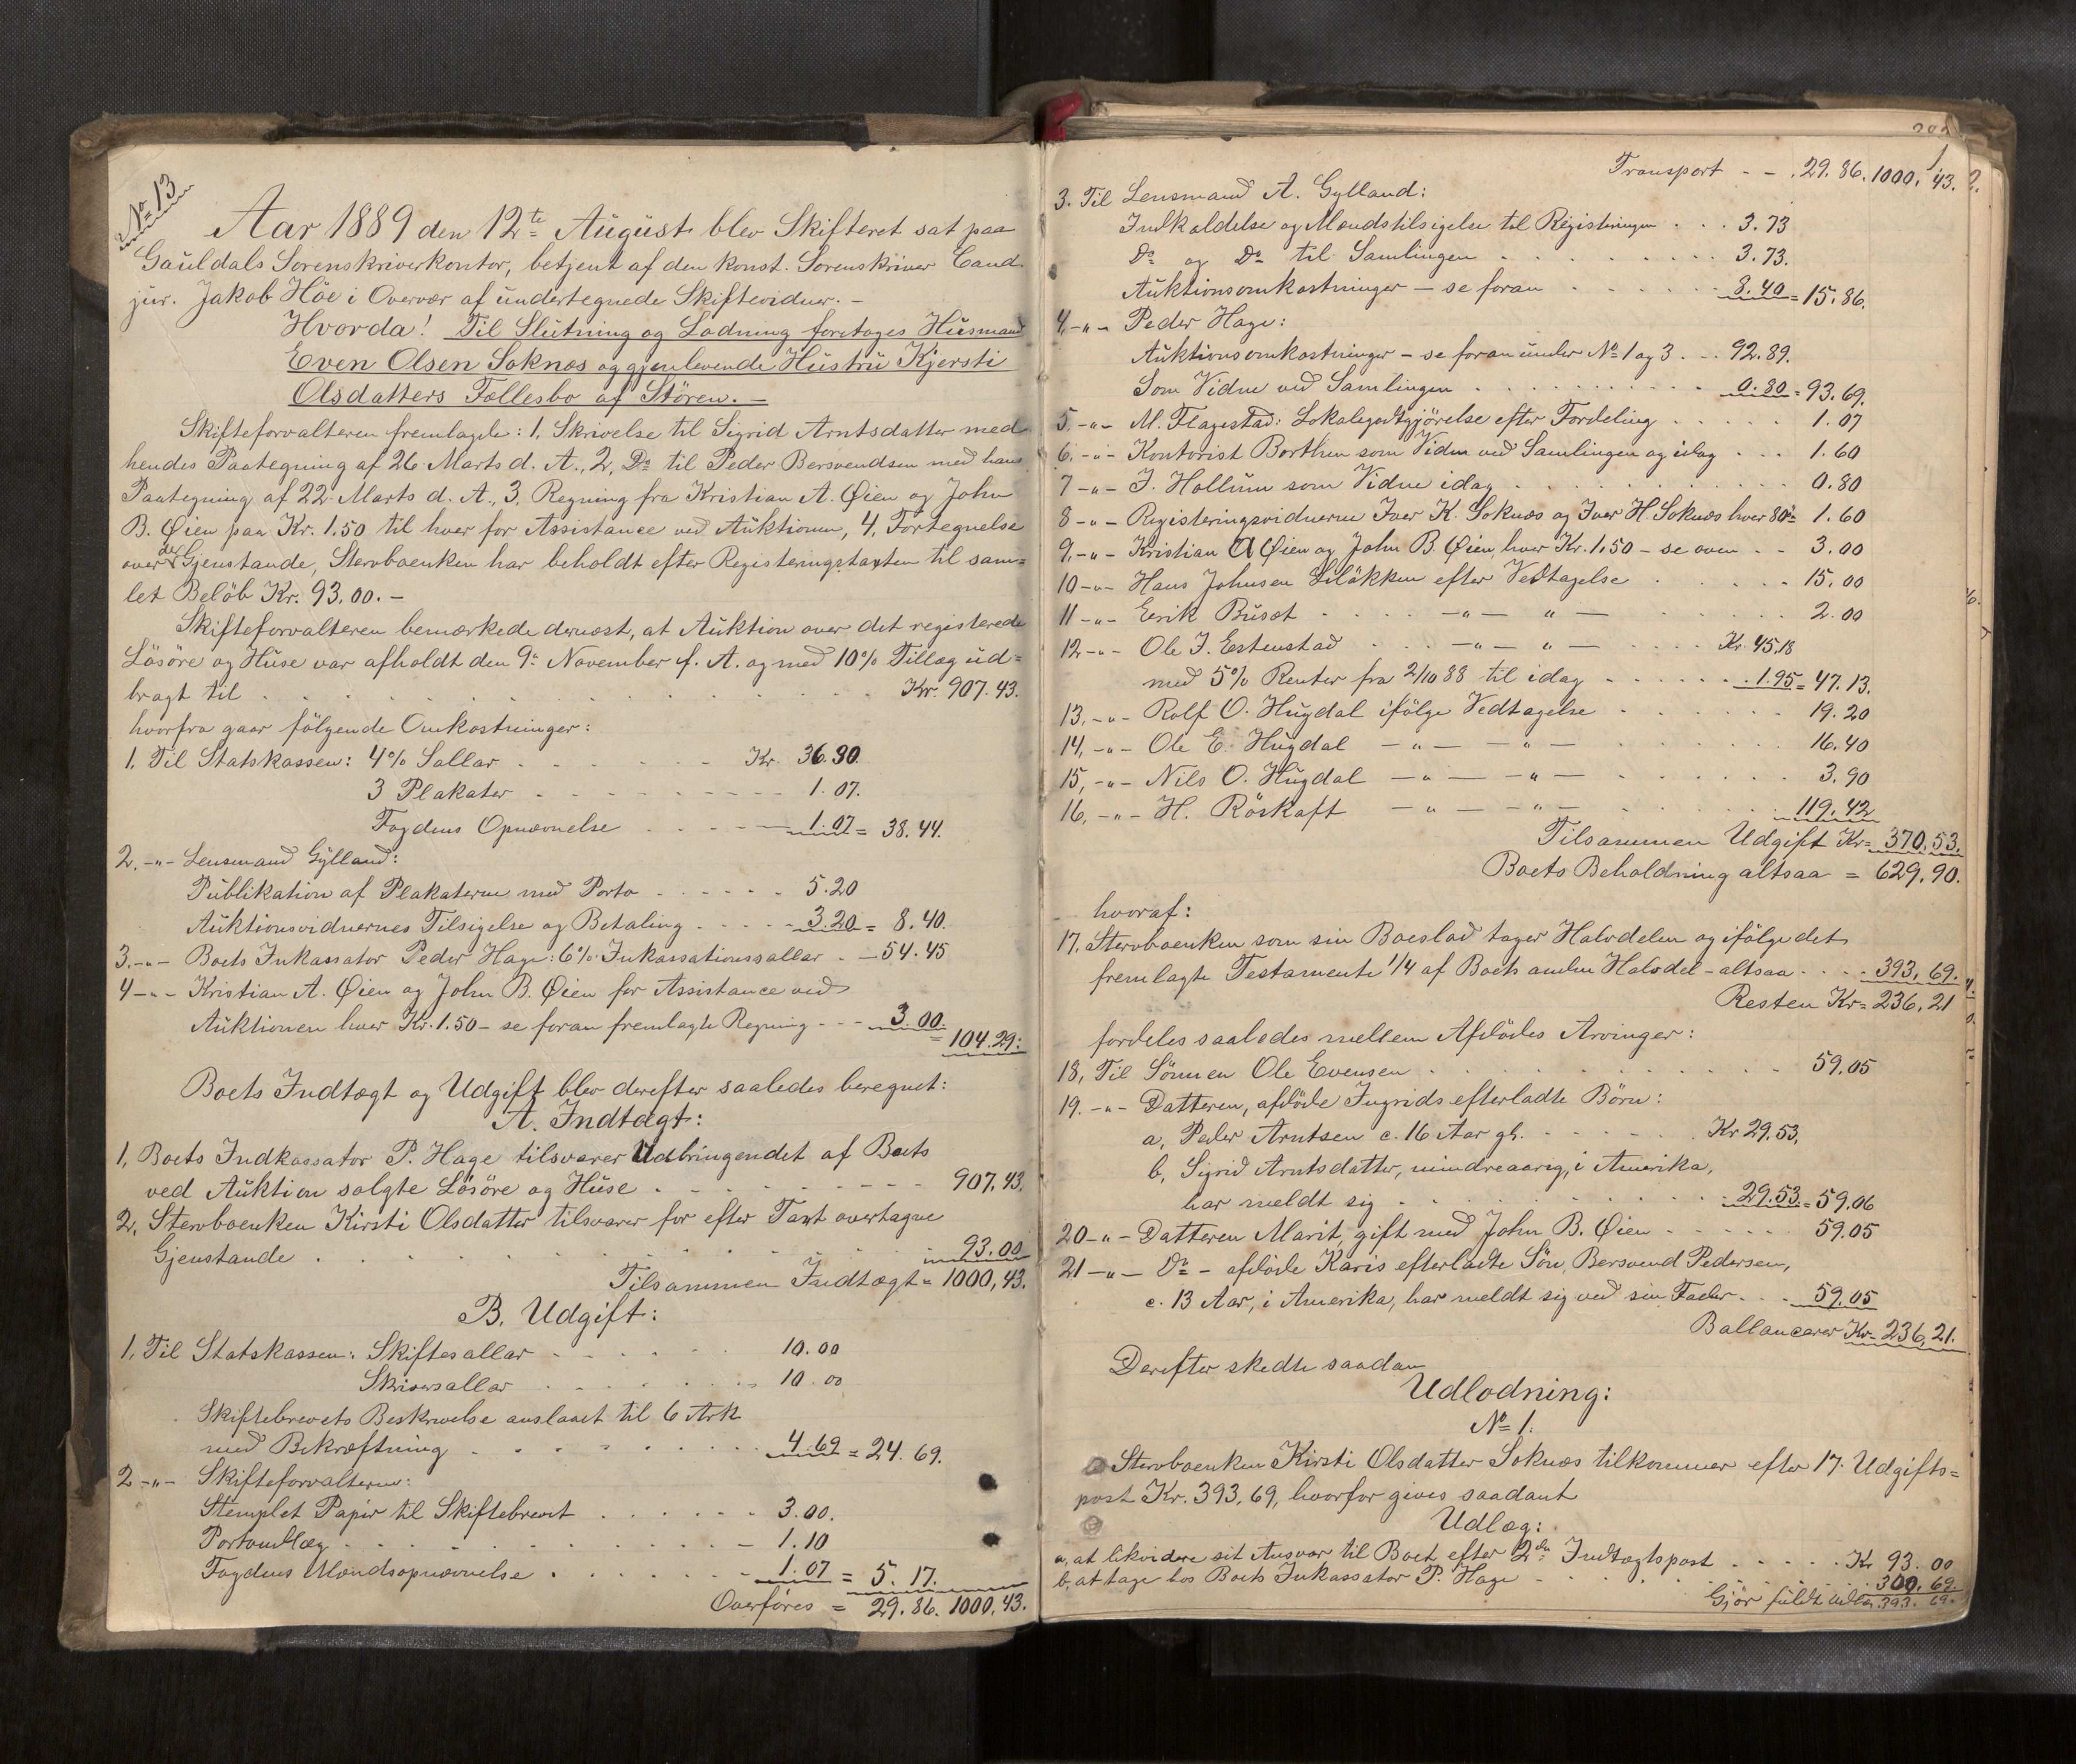 No 13
Aar 1889 den 12te August blev Skifteret sat paa
Gauldals Sorenskriverkontor, betjent af den konst. Sorenskriver Cand.
jur. Jakob Höe i Overvær af undertegnede Skiftevidner. –
Hvorda! Til Slutning og Lodning foretages Husmand
Even Olsen Soknæs og gjenlevende Hustru Kjersti
Olsdatters Fællesbo af Stören. –
Skifteforvalteren fremlagde: 1, Skrivelse til Sigrid Arntsdatter med
hendes Paategning af 26 Marts d. A., 2, Do til Peder Bersvendsen med hans
Paategning af 22 Marts d. A., 3, Regning fra Kristian A. Øien og John
B. Øien paa Kr. 1.50 til hver for Assistance ved Auktionen, 4, Fortegnelse
over de Gjenstande, Stervboenken har beholdt efter Registeringstaxten til sam=
let Belöb Kr. 93.00. –
Skifteforvalteren bemærkede dernæst, at Auktion over det registerede
Lösöre og Huse var afholdt den 9de November f. A. og med 10% Tillæg ud=
bragt til . . . Kr. 907.43.
hvorfra gaar fölgende Omkostninger:
1, Til Statskassen: 4% Sallar . . . Kr. 36.30
3 Plakater . . . 1.07.
Fogdens Opnævnelse . . . 1.07 = 38.44.
2, -"- Lensmand Gylland:
Publikation af Plakaterne med Porto . . . 5.20
Auktionsvidnernes Tilsigelse og Betaling . . . 3.20 = 8.40.
3, -"- Boets Inkassator Peder Hage: 6% Inkassationssallar . – 54.45
4 -"- Kristian A. Øien og John B. Øien for Assistance ved
Auktionen hver Kr. 1.50 – se foran fremlagte Regning - - - 3.00.
= 104.29:
Boets Indtægt og Udgift blev derefter saaledes beregnet:
A. Indtægt:
1, Boets Indkassator P. Hage tilsvarer Udbringendet af Boets
ved Auktion solgte Lösöre og Huse . . . 907.43.
2, Stervboenken Kirsti Olsdatter tilsvarer for efter Taxt overtagne
Gjenstande . . . 93.00
Tilsammen Indtægt = 1000,43.
B. Udgift:
1, Til Statskassen: Skiftesallar . . . 10.00
Skriversallar . . . 10.00
Skiftebrevets Beskrivelse anslaaet til 6 Ark
med Bekræftning . . . 4.69 = 24.69.
2 -"- Skifteforvalteren:
Stemplet Papir til Skiftebrevet . . . 3.00.
Portoudlæg . . . 1.10
Fogdens Mændsopnævnelse . . . 1.07 = 5.17.
Overföres = 29.86. 1000,43.
Transport - - . 29.86. 1000,43.
3. Til Lensmand A. Gylland:
Indkaldelse og Mændstilsigelse til Registeringen . . . 3.73
Do og Do til Samlingen . . . 3.73.
Auktionsomkostninger – se foran . . . 8.40 = 15.86.
4, -"- Peder Hage:
Auktionsomkostninger – se foran under No 1 og 3 . . . 92.89.
Som Vidne ved Samlingen . . . 0.80 = 93.69.
5. -"- M. Flagestad: Lokalegodtgjörelse efter Fordeling . . . 1.07
6. -"- Kontorist Borthen som Vidne ved Samlingen og idag . . . 1.60
7 -"- J. Hollum som Vidne idag . . . 0.80
8 -"- Registeringsvidnerne Iver K. Soknæs og Iver H. Soknæs hver 80 ö 1.60
9, -"- Kristian A Øien og John B. Øien, hver Kr. 1.50 – se oven . . 3.00
10 -"- Hans Johnsen Liløkken efter Vedtagelse . . . 15.00
11 -"- Eerik Busæt . . . -"- "- . . . 2.00
12 -"- Ole J. Estenstad . . . -"- "- . . . Kr. 45.18
med 5% Renter fra 2/10 88 til idag . . . 1.95 = 47.13.
13, -"- Rolf O. Hugdal ifölge Vedtagelse . . . 19.20
14, -"- Ole E. Hugdal -"- -"- . . . 16.40
15, -"- Nils O. Hugdal -"- -"- . . . 3.90
16, -"- H. Röskaft -"- -"- . . . 119.42
Tilsammen Udgift Kr. 370.53.
Boets Beholdning altsaa = 629.90.
hvoraf:
17, Stervboenken som sin Boeslod tager Halvdelen og ifölge det
fremlagte Testamente 1/4 af Boets anden Halvdel – altsaa . . . 393,69.
Resten Kr. 236,21
fordeles saaledes mellem Afdödes Arvinger:
18, Til Sönnen Ole Evensen . . . 59.05
19. -"- Datteren, afdöde Ingrids efterladte Börn:
a, Peder Arntsen c. 16 Aar gl. . . . Kr 29.53,
b, Sigrid Arntsdatter, mindreaarig, i Amerika,
har meldt sig . . . 29.53 = 59.06
20 -"- Datteren Marit, gift med John B. Øien . . . 59.05
21 -"- Do - afdöde Karis efterladte Sön, Bersvend Pedersen,
c. 13 Aar, i Amerika, har meldt sig ved sin Fader . . . 59.05
Ballancerer Kr. 236,21.
Derefter skedte saadan
Udlodning:
No 1.
Stervboenken Kirsti Olsdatter Soknæs tilkommer efter 17. Udgifts=
post Kr. 393,69, hvorfor gives saadant
Udlæg:
a, at likvidere sit Ansvar til Boet efter 2den Indtægtspost . . . Kr 93.00
b, at tage hos Boets Inkassator P. Hage . . . 300,69.
Gjör fuldt Udlæg 393.69.